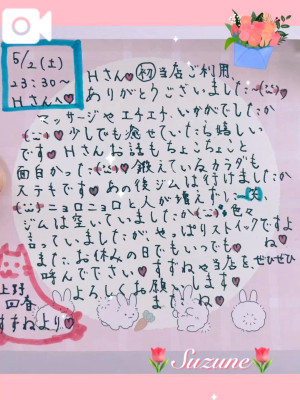 5/2(土)
23:30〜
Hさん♥
Hさん♥初当店ご利用、
ありがとうございました♥
マッサージやエチエチ、いかがでしたか
少しでも癒せていたら嬉しい
です♥Hさんお話もちょこちょこと
面白かった♥鍛えているカラダも
ステキです♥あの後ジムは行けましたか
ニョロニョロと人が増えだし…
ジムは空いていましたか♥色々
言っていましたがやっぱりストイックですよね♥
また、お休みの日でもいつでも
呼んで下さい♥すずねや当店を、ぜひぜひ
よろしくお願いします♥
またね♥
上野
回春
すずねより♥
Suzune